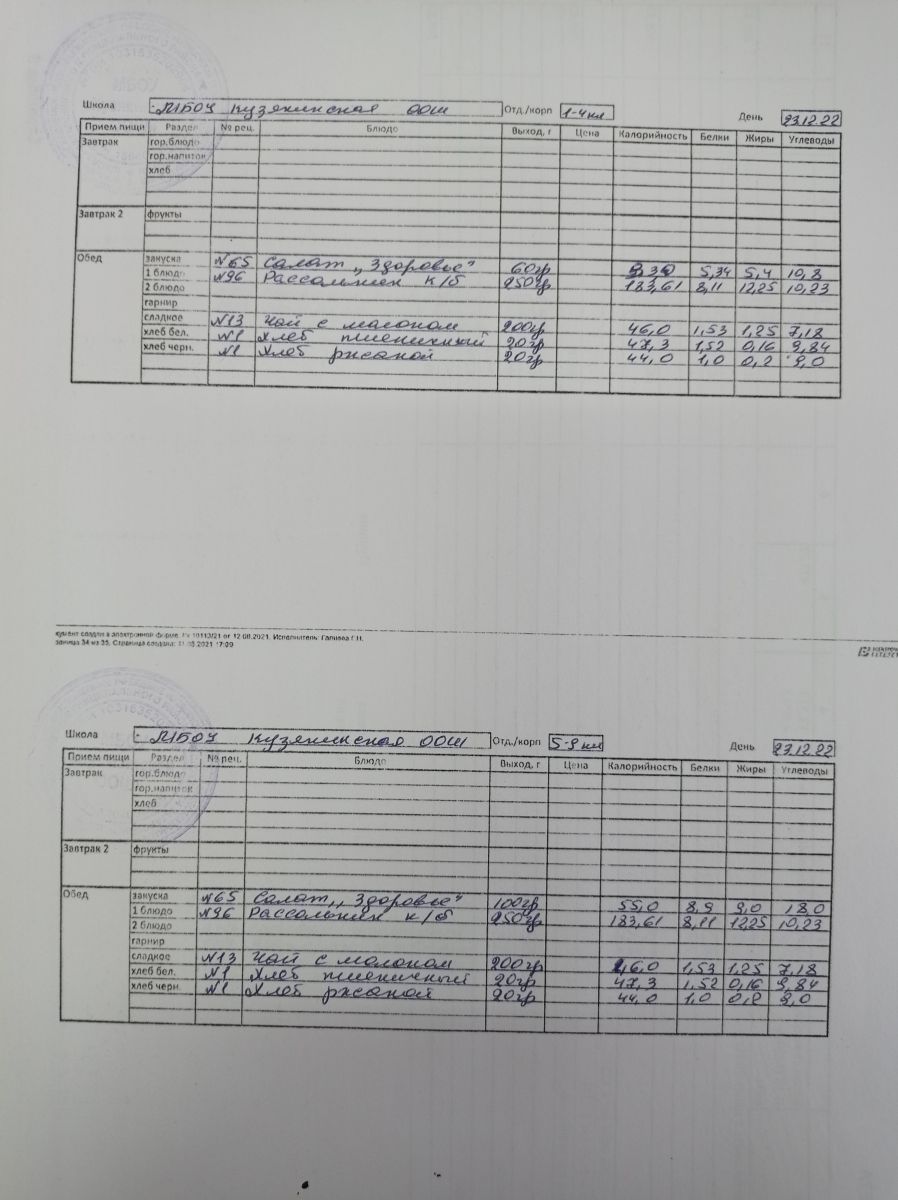 Школа МБОУ Кузякинская ООШ Отд./корп 1-4 кл День 23.12.22
Прием пищи Раздел № рец. Блюдо Выход, г Цена Калорийность Белки Жиры Углеводы
Завтрак гор.блюдо
гор.напиток
хлеб
Завтрак 2 фрукты
Обед закуска №65 Салат „Здоровье" 60гр 5,34 5,4 10,8
1 блюдо №96 Рассольник к/б 250гр 183,61 8,11 12,25 10,23
2 блюдо
гарнир
сладкое №13 Чай с молоком 200гр 46,0 1,53 1,25 7,18
хлеб бел. №1 Хлеб пшеничный 20гр 47,3 1,52 0,16 9,84
хлеб черн. №1 Хлеб ржаной 20гр 44,0 1,0 0,2 9,0
кумент создан в электронной форме. № 10113/21 от 12.08.2021. Исполнитель:
аница 34 из 35. Страница создана: 2021 17:09
Школа МБОУ Кузякинская ООШ Отд./корп 5-9 кл День 23.12.22
Прием пищи Раздел № рец. Блюдо Выход, г Цена Калорийность Белки Жиры Углеводы
Завтрак гор.блюдо
гор.напиток
хлеб
Завтрак 2 фрукты
Обед закуска №65 Салат „Здоровье" 100гр 55,0 8,9 9,0 18,0
1 блюдо №96 Рассольник к/б 250гр 183,61 8,11 12,25 10,23
2 блюдо
гарнир
сладкое №13 Чай с молоком 200гр 46,0 1,53 1,25 7,18
хлеб бел. №1 Хлеб пшеничный 20гр 47,3 1,52 0,16 9,84
хлеб черн. №1 Хлеб ржаной 20гр 44,0 1,0 0,2 9,0